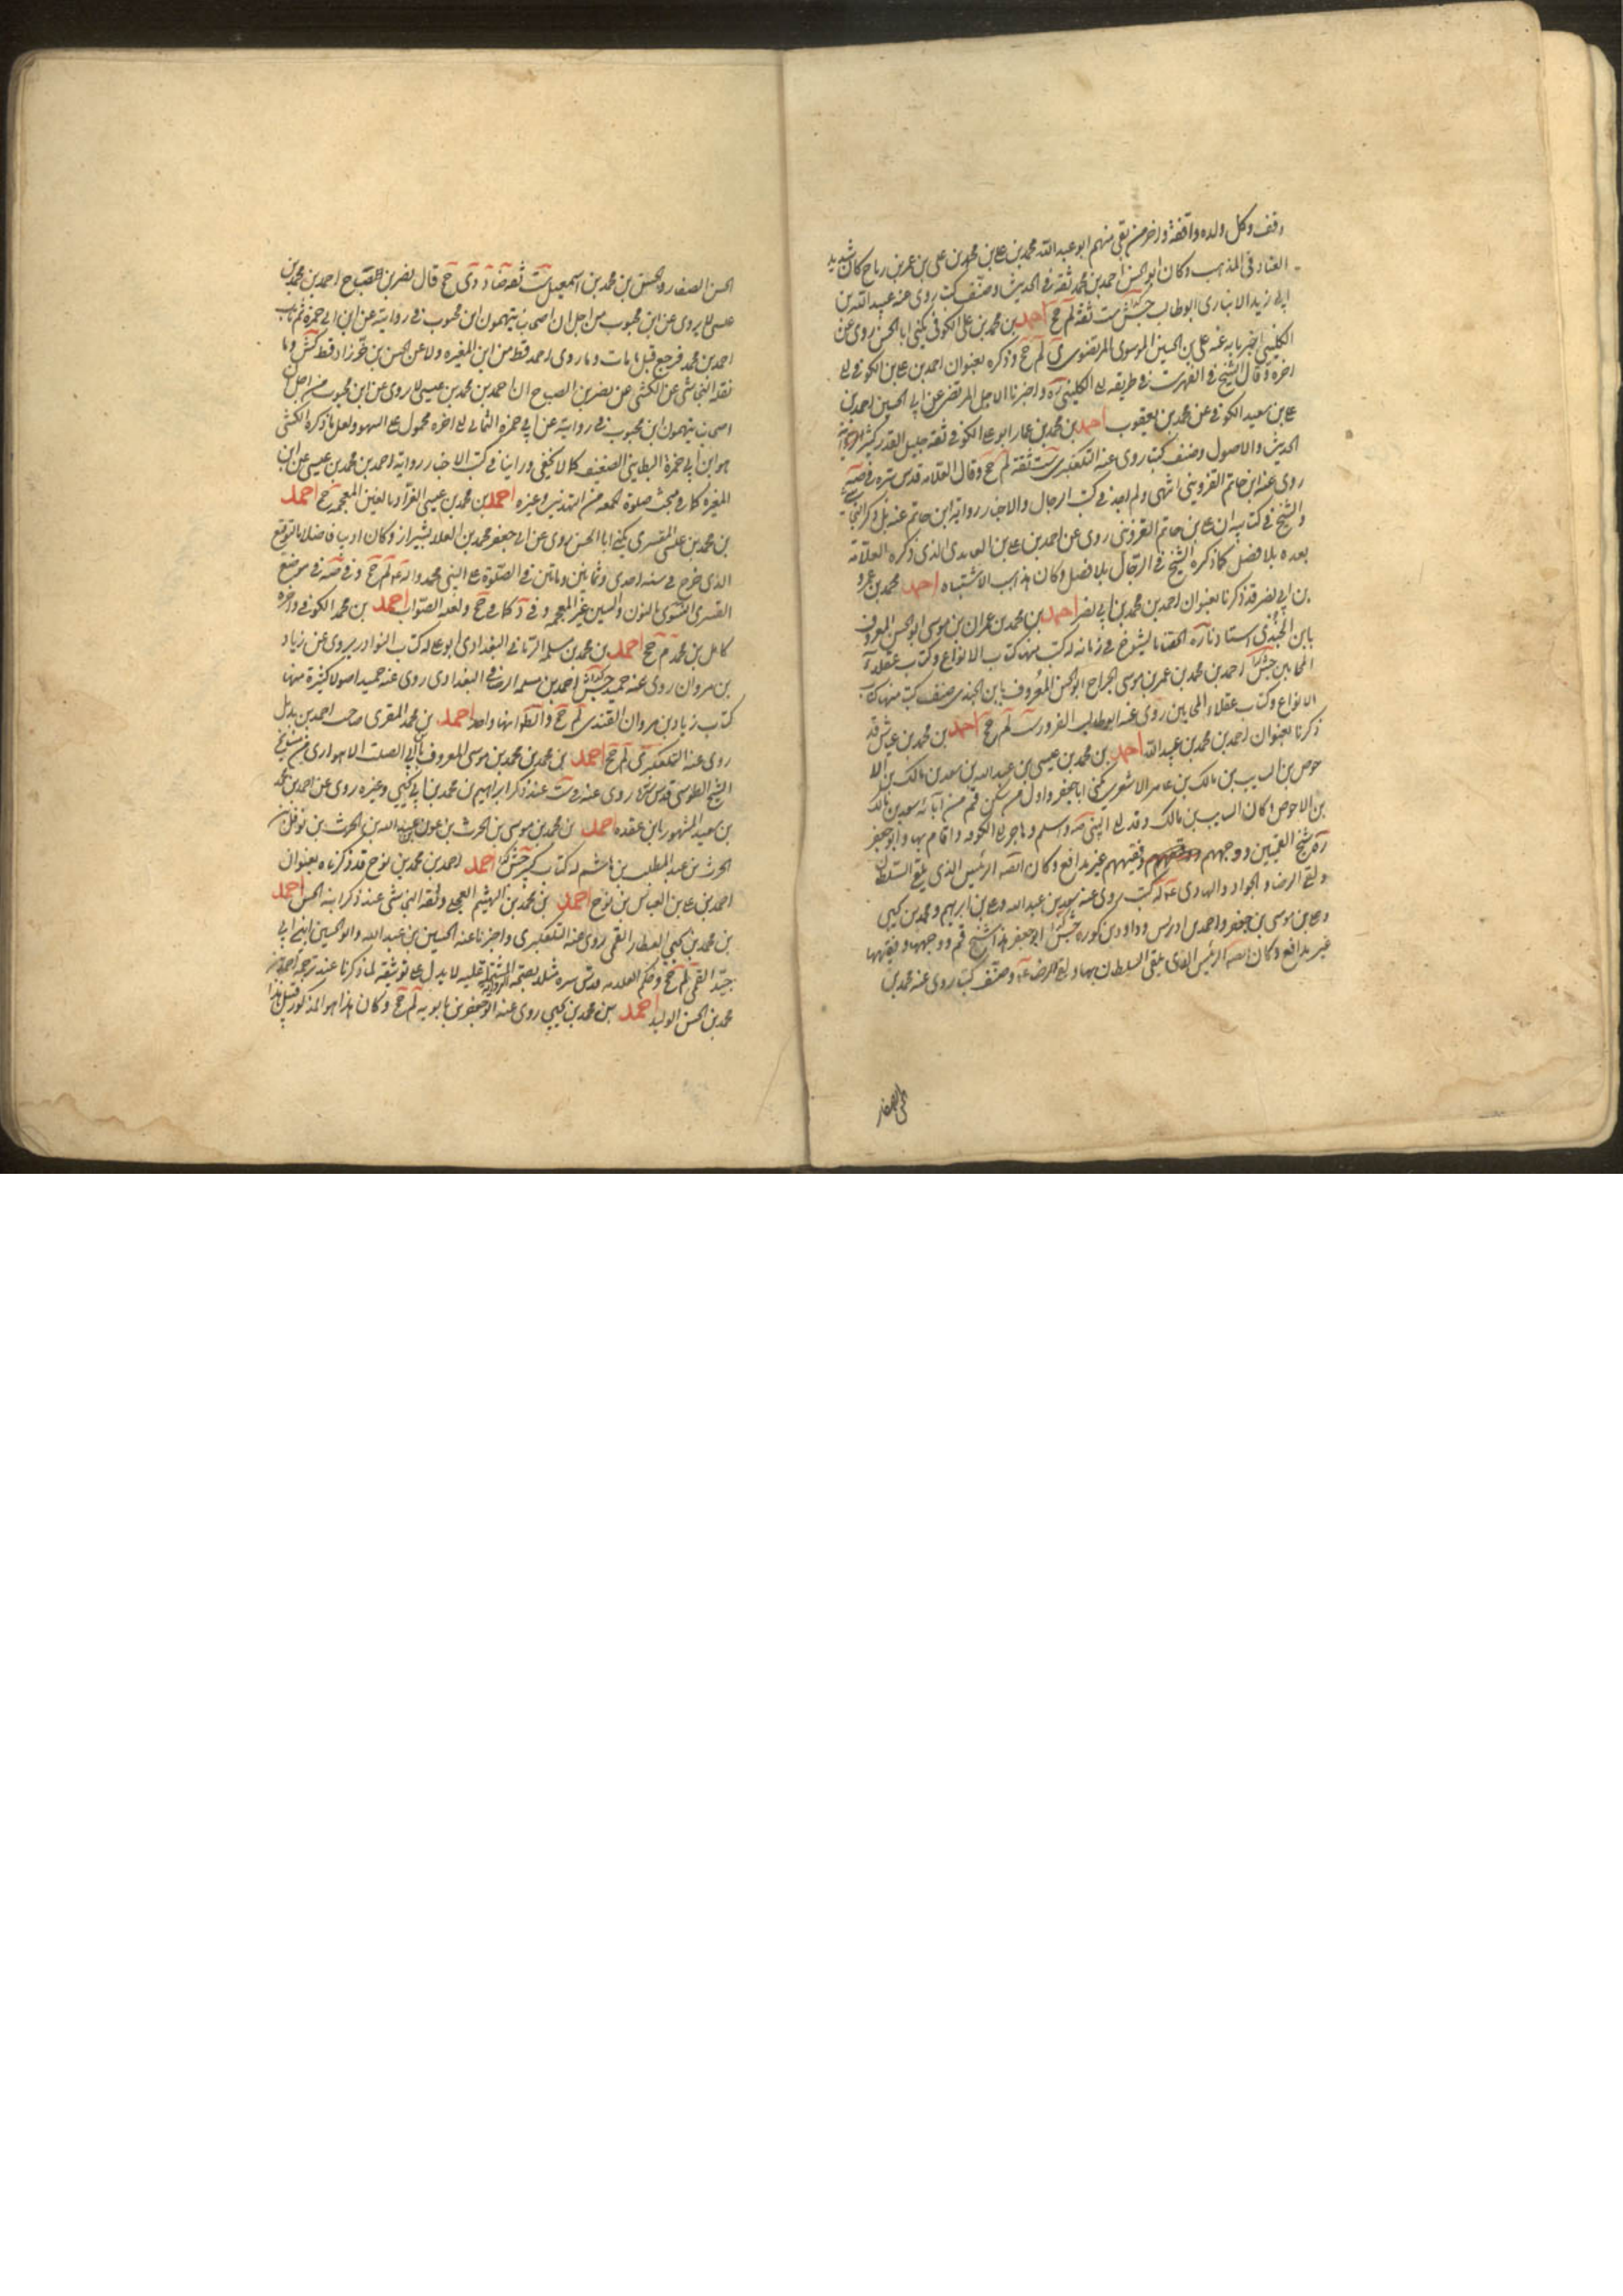 وقف وكل ولده واقفة واخر من بقى منهم ابو عبد الله محمد بن على بن محمد بن على بن عمر بن رباح كان شديد
العناد فى المذهب وكان ابو الحسن احمد بن محمد ثقة فى الحديث وصنف كتبا روى عنه عبيد الله بن
ابى زيد الانبارى ابو طالب جش ست ثقة لم جخ احمد بن محمد بن على الكوفى يكنى ابا الحسن روى عن
الكلينى اخبرنا به عنه على بن الحسين الموسوى المرتضى لم جخ وذكره بعنوان احمد بن على بن الكوفى الى
اخره وقال الشيخ فى الفهرست فى طريقه الى الكلينى ره واخبرنا الاجل المرتضى عن ابى الحسين احمد بن
على بن سعيد الكوفى عن محمد بن يعقوب احمد بن محمد بن عمار ابو على الكوفى ثقة جليل القدر كثير
الحديث والاصول وصنف كتبا روى عنه التلعكبرى ست ثقة لم جخ وقال العلامة قدس سره فى صه
روى عنه ابن حاتم القزوينى انتهى ولم اجد فى كتب الرجال والاخبار رواية ابن حاتم عنه بل ذكر النجاشى
والشيخ فى كتابيه ان على بن حاتم القزوينى روى عن احمد بن على بن العبدى الذى ذكره العلامة
بعده بلا فصل كما ذكره الشيخ فى الرجال بلا فصل وكان هذا سبب الاشتباه احمد محمد بن عمرو
بن ابى نصر قد ذكرنا بعنوان احمد بن محمد بن ابى نصر احمد بن محمد بن عمران بن موسى ابو الحسن المعروف
بابن الجندى استادنا ره الحقنا بالشيوخ فى زمانه له كتب منها كتاب الانواع وكتاب عقلاء
المجانين جش احمد بن محمد بن عمر بن موسى الجراح ابو الحسن المعروف بابن الجندى صنف كتبا منها كتاب
الانواع وكتاب عقلاء المجانين روى عنه ابو طالب الغرور ست لم جخ احمد بن محمد بن عياش قد
ذكرنا بعنوان احمد بن محمد بن عبيد الله احمد بن محمد بن عيسى بن عبد الله بن سعد بن مالك بن الا
حوص بن السايب بن مالك بن عامر الاشعرى يكنى ابا جعفر واول من سكن قم من آبائه سعد بن مالك
بن الاحوص وكان السايب بن مالك وفد الى النبى صه واسلم وهاجر الى الكوفة واقام بها وابو جعفر
ره شيخ القميين ووجههم وفقيههم غير مدافع وكان ايضا الرئيس الذى يلقى السلطان
ولقى الرضا والجواد والهادى عه له كتب روى عنه سعد بن عبد الله وعلى بن ابراهيم ومحمد بن يحيى
وعلى بن موسى بن جعفر واحمد بن ادريس وداود بن كوره جش ابو جعفر هذا شيخ قم ووجهها وفقيهها
غير مدافع وكان ايضا الرئيس الذى يلقى السلطان بها ولقى الرضا عه وصنف كتبا روى عنه محمد بن
الحسن الصفار
الحسن الصفار والحسن بن محمد بن اسمعيل ست ثقة ضا د دى جخ قال نصر بن الصباح احمد بن محمد بن
عيسى لا يروى عن ابن محبوب من اجل ان اصحابنا يتهمون ابن محبوب فى روايته عن ابن ابى حمزة ثم تاب
احمد بن محمد فرجع قبل ما مات وما روى احمد قط من ابن المغيره ولا عن الحسن بن خرزاد قط كش وما
نقله النجاشى عن الكشى عن نصر بن الصباح ان احمد بن محمد بن عيسى لا يروى عن ابن محبوب من اجل ان
اصحابنا يتهمون ابن محبوب فى روايته عن ابى حمزه الثمالى الى اخره محمول على السهو ولعل ما ذكره الكشى
هو ابن ابى حمزة البطاينى الضعيف كما لا يخفى وراينا فى كتب الاخبار رواية احمد بن محمد بن عيسى عن ابن
المغيره كما فى مبحث صلوة الجمعه من التهذيب وغيره احمد بن محمد بن عيسى الغراد بالغين المعجمه جخ احمد
بن محمد بن عيسى القسرى يكنى ابا الحسن روى عن ابى جعفر محمد بن العلا بشيراز وكان اديبا فاضلا بالتوقيع
الذى خرج فى سنه احدى وثمانين وماتين فى الصلوة على النبى محمد واله لم جخ وفى صه فى موضع
القسرى النسوى بالنون والسين غير المعجمه وفى د كما فى جخ ولعله الصواب احمد بن محمد الكوفى
كامل بن محمد م جخ احمد بن محمد بن مسلمه الرمانى البغدادى ابو على له كتاب النوادر يروى عن زياد
بن مروان روى عنه حميد جش احمد بن سلمه الرصافى البغدادى روى عنه حميد اصولا كثيرة منها
كتاب زياد بن مروان القندى لم جخ والظ انهما واحد احمد بن محمد المقرى صاحب احمد بن بديل
روى عنه التلعكبرى لم جخ احمد بن محمد بن موسى المعروف بابن الصلت الاهوازى من مشايخ
الشيخ الطوسى قدس سره روى عنه فى ست عند ذكر ابراهيم بن محمد بن ابى يحيى وغيره روى عن احمد بن محمد
بن سعيد المشهور بابن عقده احمد بن محمد بن موسى بن الحرث بن عون بن عبد الله بن الحرث بن نوفل بن
الحرث بن عبد المطلب بن هاشم له كتاب كبير جش احمد احمد بن محمد بن نوح قد ذكرناه بعنوان
احمد بن على بن العباس بن نوح احمد بن محمد بن الهيثم العجلى وثقه النجاشى عند ذكر ابنه الحسن احمد
بن محمد بن يحيى العطار القمى روى عنه التلعكبرى واخبرنا عنه الحسين بن عبيد الله وابو الحسين ابن ابى
جيد القمى لم جخ وحكم العلامه قدس سره بصحة الرواية المشتملة عليه لا يدل على توثيقه لما ذكرنا عند ترجمة احمد بن
محمد بن الحسن الوليد احمد بن محمد بن يحيى روى عنه ابو جعفر بن بابويه لم جخ وكان هذا هو المذكور قبيل هذا